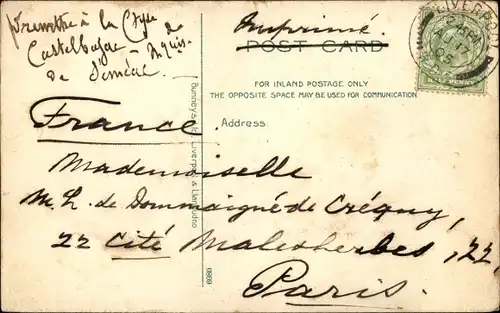 premettre à la Ctsse de
Castelbajac - Mquis.
de Siméac.
Imprimé.
POST CARD
LIVERPOOL
AP 17
05
FOR INLAND POSTAGE ONLY
THE OPPOSITE SPACE MAY BE USED FOR COMMUNICATION
Address:
France.
Mademoiselle
M. L. de Dommaigné de Créquy,
22 Cité Malesherbes, 22,
Paris.
Liverpool & Llandudno